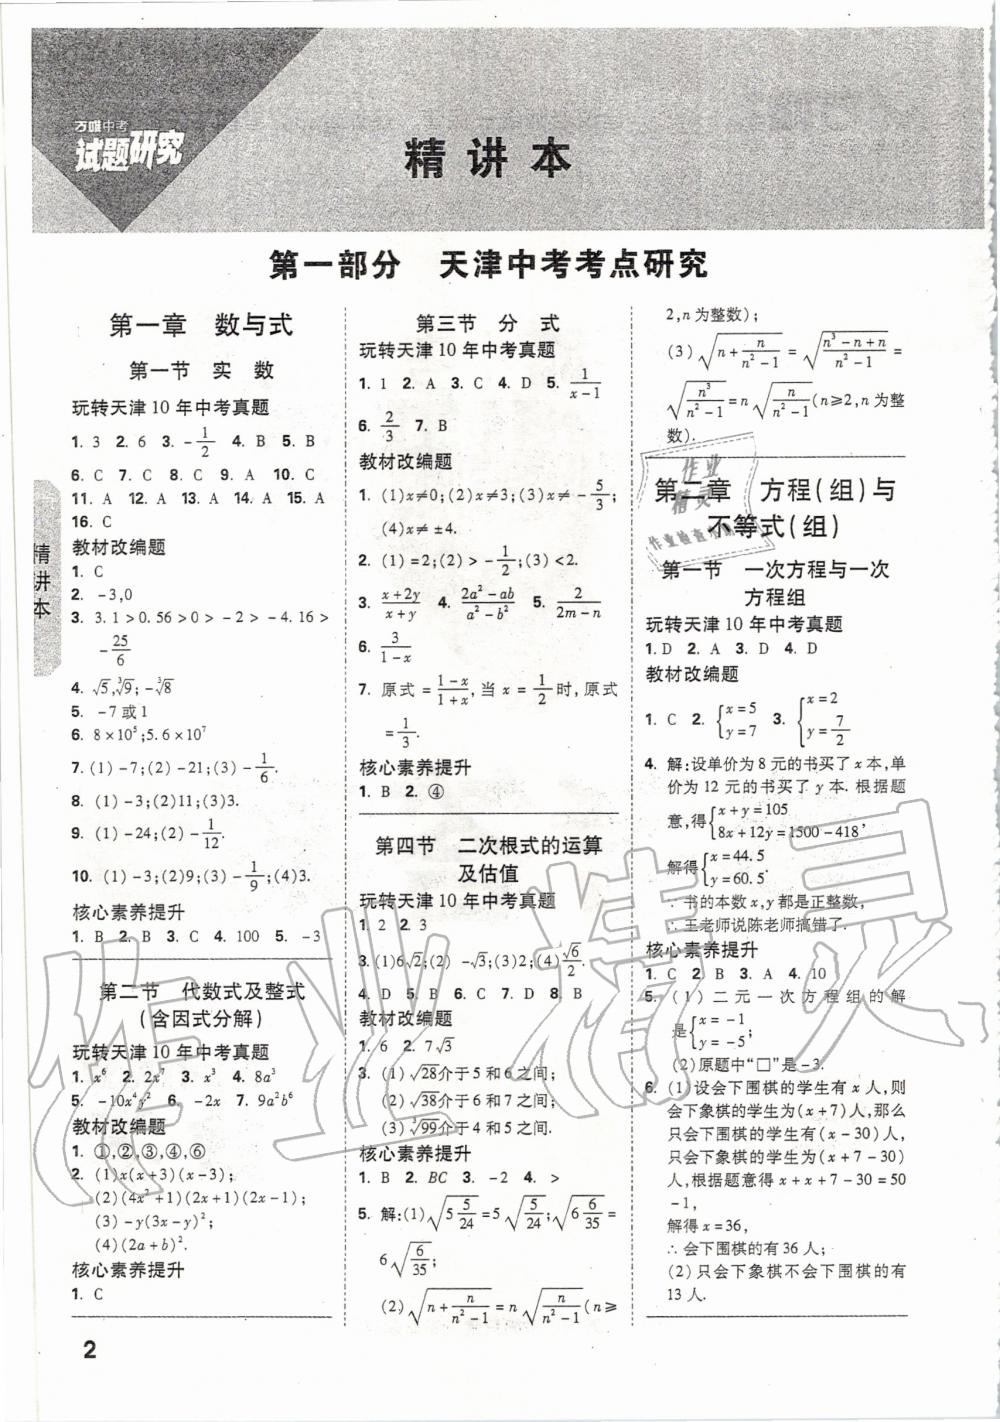 万唯中考
试题研究
精讲本
第一部分 天津中考考点研究
精讲本
第一章 数与式
第一节 实 数
玩转天津10年中考真题
1. 3 2. 6 3. -1/2 4. B 5. B
6. C 7. C 8. C 9. A 10. C
11. A 12. A 13. A 14. A 15. A
16. C
教材改编题
1. C
2. -3,0
3. 3.1>0.56>0>-2>-4.16>
-25/6
4. √5,∛9;-∛8
5. -7或1
6. 8×10⁵;5.6×10⁷
7. (1)-7;(2)-21;(3)-1/6.
8. (1)-3;(2)11;(3)3.
9. (1)-24;(2)-1/12.
10. (1)-3;(2)9;(3)-1/9;(4)3.
核心素养提升
1. B 2. B 3. C 4. 100 5. -3
第二节 代数式及整式
(含因式分解)
玩转天津10年中考真题
1. x⁶ 2. 2x⁷ 3. x³ 4. 8a³
5. -10x⁴y² 6. -2x 7. 9a²b⁶
教材改编题
1. ①,②,③,④,⑥
2. (1)x(x+3)(x-3);
(2)(4x²+1)(2x+1)(2x-1);
(3)-y(3x-y)²;
(4)(2a+b)².
核心素养提升
1. C
第三节 分 式
玩转天津10年中考真题
1. 1 2. A 3. C 4. D 5. 1/(x-1)
6. 2/3 7. B
教材改编题
1. (1)x≠0;(2)x≠3;(3)x≠-5/3;
(4)x≠±4.
2. (1)=2;(2)>-1/2;(3)<2.
3. (x+2y)/(x+y) 4. (2a²-ab)/(a²-b²) 5. 2/(2m-n)
6. 3/(1-x)
7. 原式=(1-x)/(1+x),当x=1/2时,原式
=1/3.
核心素养提升
1. B 2. ④
第四节 二次根式的运算
及估值
玩转天津10年中考真题
1. 2 2. 3
3. (1)6√2;(2)-√3;(3)2;(4)√6/2.
4. D 5. B 6. C 7. D 8. B
教材改编题
1. 6 2. 7√3
3. (1)√28介于5和6之间;
(2)√38介于6和7之间;
(3)∛99介于4和5之间.
核心素养提升
1. B 2. BC 3. -2 4. >
5. 解:(1)√(5 5/24)=5√(5/24);√(6 6/35)=
6√(6/35);
(2)√(n+n/(n²-1))=n√(n/(n²-1))(n≥
2,n为整数);
(3)√(n+n/(n²-1))=√((n³-n+n)/(n²-1))=
√(n³/(n²-1))=n√(n/(n²-1))(n≥2,n为整
数).
第二章 方程(组)与
不等式(组)
第一节 一次方程与一次
方程组
玩转天津10年中考真题
1. D 2. A 3. D 4. D
教材改编题
1. C 2. {x=5 y=7 3. {x=2 y=-7/2
4. 解:设单价为8元的书买了x本,单
价为12元的书买了y本.根据题
意,得{x+y=105 8x+12y=1500-418,
解得{x=44.5 y=60.5.
∵书的本数x,y都是正整数,
∴王老师说陈老师搞错了.
核心素养提升
1. C 2. B 3. A 4. 10
5. (1)二元一次方程组的解
是{x=-1 y=-5;
(2)原题中“□”是-3.
6. (1)设会下围棋的学生有x人,则
会下象棋的学生为(x+7)人,那么
只会下围棋的学生为(x-30)人,
只会下象棋的学生为(x+7-30)
人,根据题意得x+x+7-30=50
-1,
解得x=36,
∴会下围棋的有36人;
(2)只会下象棋不会下围棋的有
13人.
作业
精灵
作业精灵
2